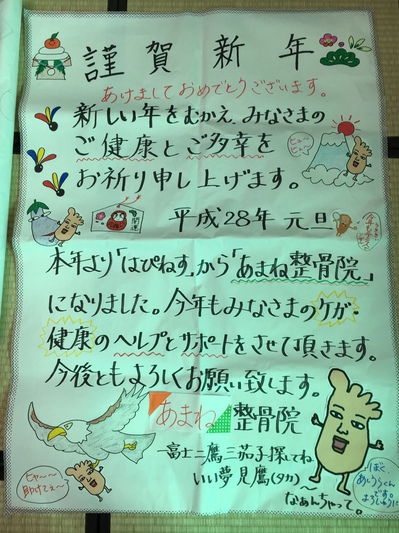 謹賀新年
あけましておめでとうございます。
新しい年をむかえ、みなさまの
ご健康とご多幸を
お祈り申し上げます。
開運
平成28年 元旦
本年より「はぴねす」から「あまね整骨院」
になりました。今年もみなさまのケガ・
健康のヘルプとサポートをさせて頂きます。
今後ともよろしくお願い致します。
あまね整骨院
一富士二鷹三茄子探してね
いい夢見鷹(タカ)〜
なぁんちゃって。
ヒャ〜〜
助けてぇ〜